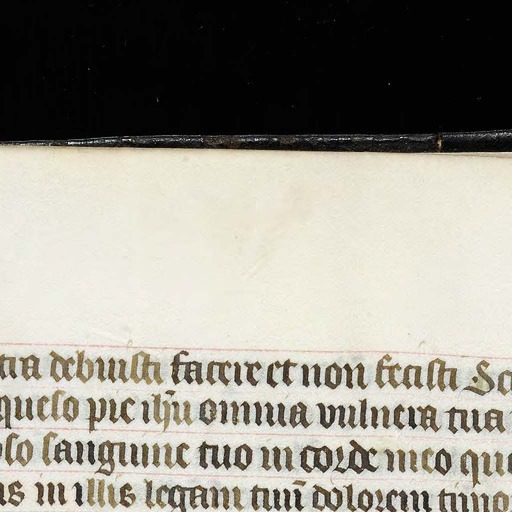 tia debuisti facere et non fecisti Sc
queso pie ihu omnia vulnera tua
oso sanguine tuo in corde meo que
is in illis legam tuū dolorem timo